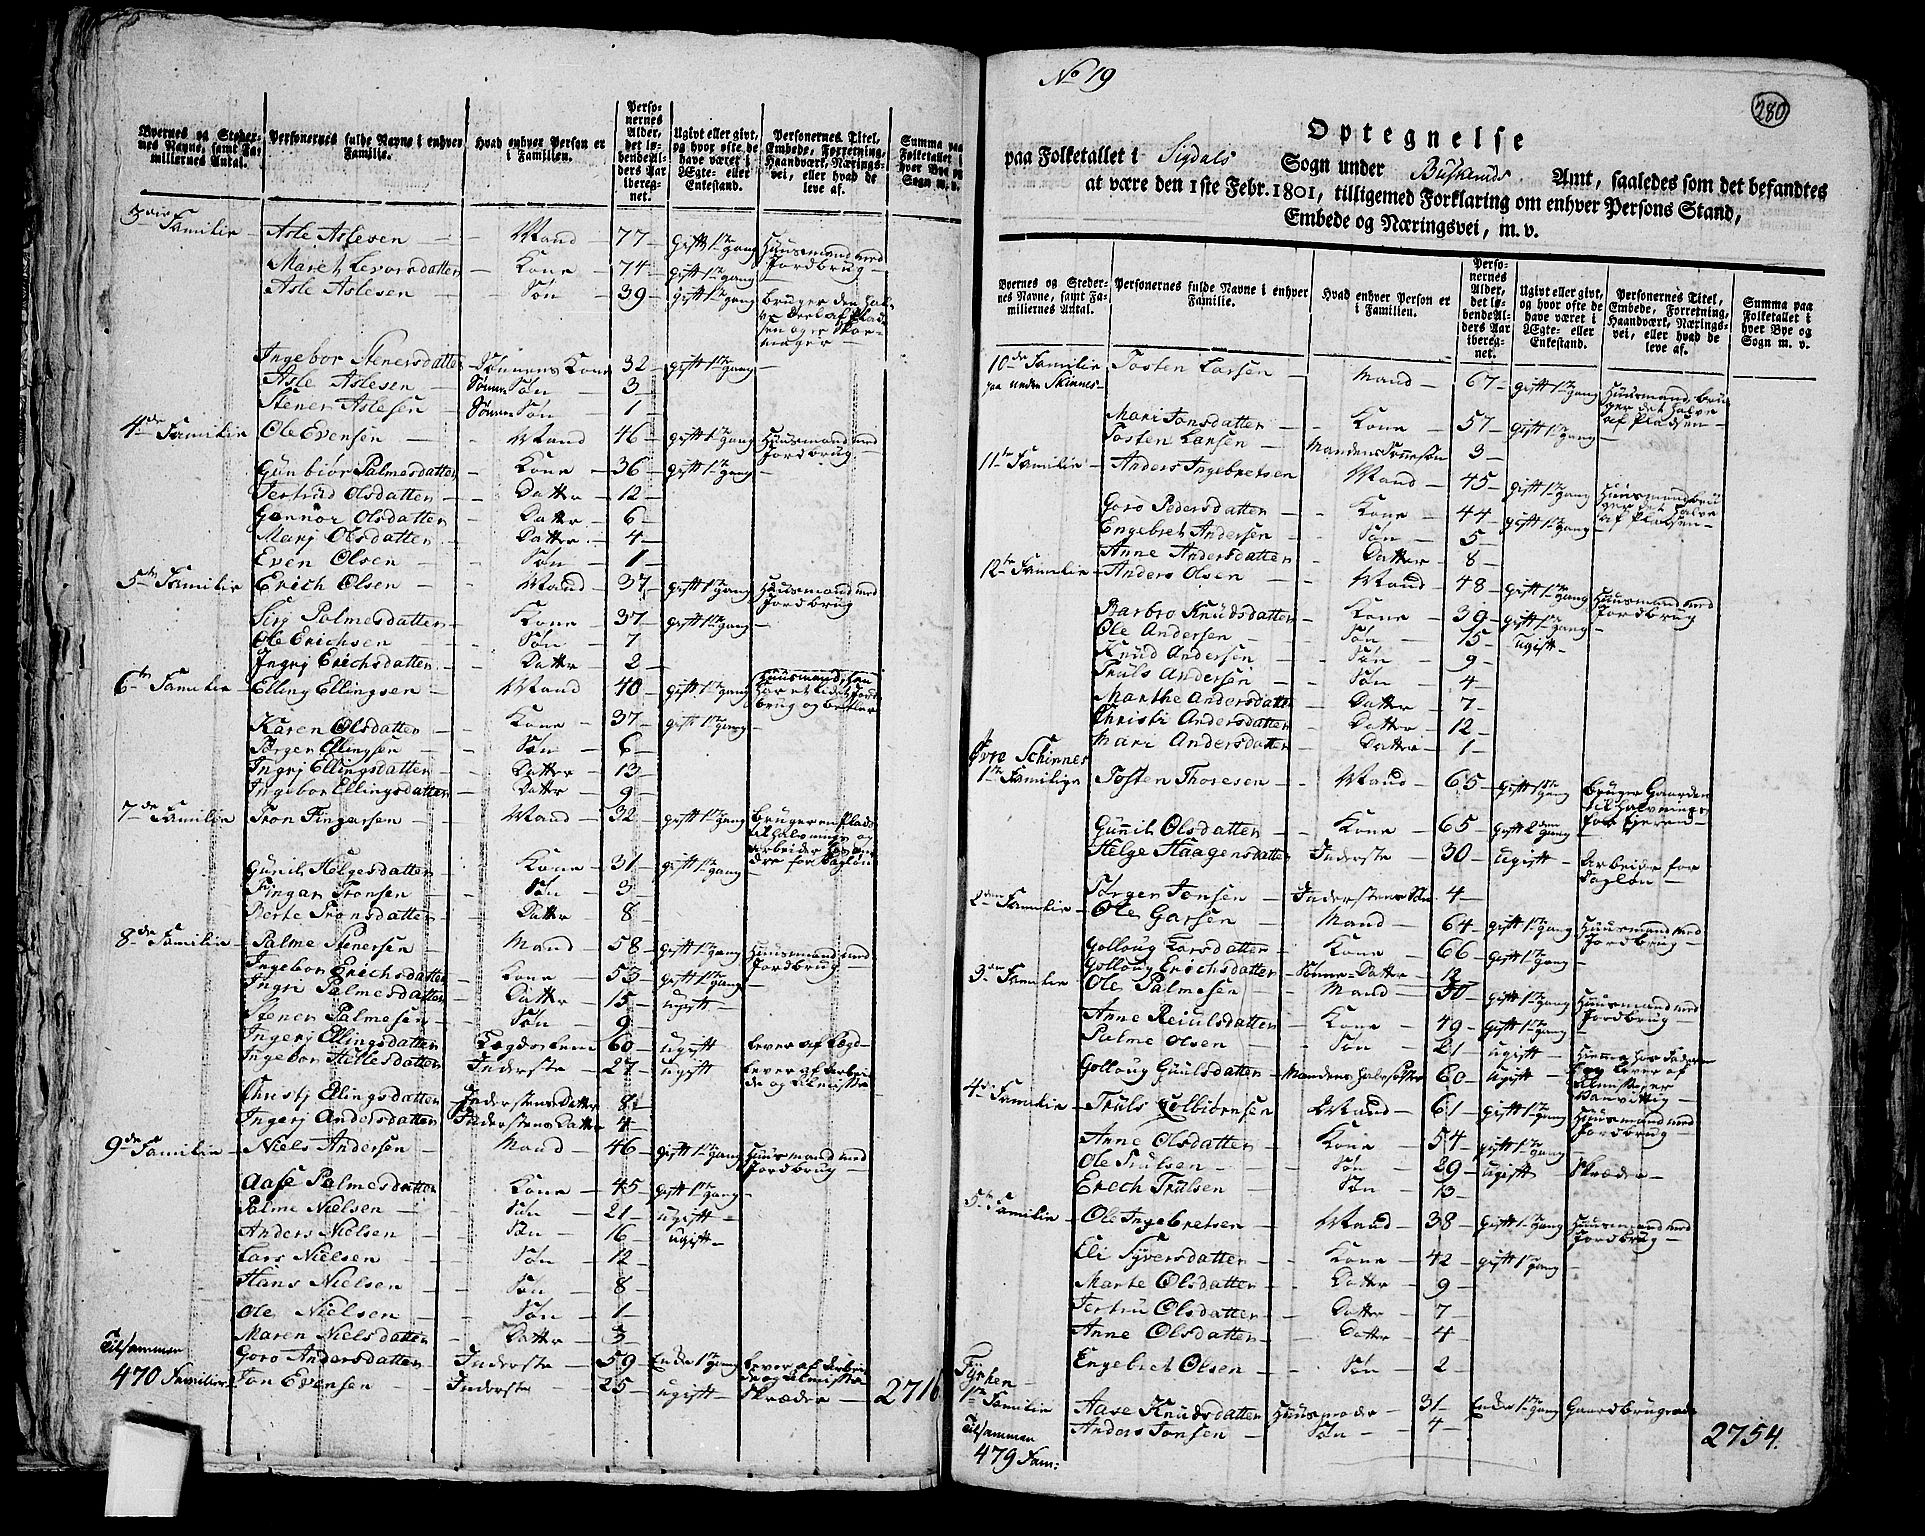 Byernes og Steder-
nes Navne, samt Fa-
miliernes Antal.
Personernes fulde Navne i enhver
Familie.
Hvad enhver Person er
i Familien.
Perso-
nernes
Alder,
det lø-
bende Al-
ders Aar
ibereg-
net.
Ugivt eller givt,
og hvor ofte de
have været i
Ægte- eller
Enkestand.
Personernes Titel,
Embede, Forretning,
Haandværk, Nærings-
vei, eller hvad de
leve af.
Summa paa
Folketallet i
hver Bye og
Sogn m. v.
3die Familie Asle Aslesen - Mand - 77 - gift 1te Gang Huusmand med Jordbrug -
Maret Levorsdatter - Kone - 74 - gift 1te Gang -
Asle Aslesen - Søn - 39 - gift 1te Gang bruger den hal-
ve Deel af Plad-
sen og er Skoe-
mager -
Ingebor Stenersdatter Sønnens Kone 32 - gift 1te Gang -
Asle Aslesen - Sønne Søn - 3 -
Stener Aslesen - Sønne Søn - 1 -
4de Familie Ole Evensen - Mand - 46 - gift 1te Gang Huusmand med Jordbrug -
Gunbiør Palmesdatter - Kone - 36 - gift 1te Gang -
Jertrud Olsdatter - Datter - 12 -
Gunnor Olsdatter - Datter - 6 -
Marj Olsdatter - Datter - 4 -
Even Olsen - Søn - 1 -
5te Familie Erich Olsen - Mand - 37 - gift 1te Gang Huusmand med Jordbrug
Sirj Palmesdatter - Kone - 37 - gift 1te Gang -
Ole Erichsen - Søn - 7 -
Ingrj Erichsdatter - Datter - 2 -
6te Familie - Elling Ellingsen - Mand - 40 - gift 1te Gang Huusmand, har et lidet Jord-
brug og betler
Karen Olsdatter - Kone - 37 - gift 1te Gang -
Børger Ellingsen - Søn - 6 -
Ingrj Ellingsdatter - Datter - 13 -
Ingebor Ellingsdatter - Datter - 9 -
7de Familie Tron Fingarsen - Mand - 32 - gift 1te Gang bruger en Plads
til Halvnings og
arbeider for an-
dre for Dagløn
Gunil Helgesdatter - Kone - 31 - gift 1te Gang -
Fingar Tronsen - Søn - 3 -
Berte Tronsdatter - Datter - 8 -
8de Familie - Palme Stenersen - Mand - 58 - gift 1te Gang Huusmand med Jordbrug -
Ingebor Erichsdatter - Kone - 53 - gift 1te Gang -
Ingri Palmesdatter - Datter - 15 - ugift -
Stener Palmesen - Søn - 9 -
Ingerj Ellingsdatter - Lægdslem 60 - ugift - lever af Lægd -
Ingebor Hellesdatter Inderste - 27 - ugift lever af Arbei-
de og Almisse
Christj Ellingsdatter Inderstens Datter 8 -
Ingerj Andersdatter Inderstens Datter 4 -
9de Familie - Niels Andersen - Mand - 46 - gift 1te Gang Huusmand med Jordbrug -
Aase Palmesdatter - Kone - 45 - gift 1te Gang -
Palme Nielsen - Søn - 21 - ugift -
Anders Nielsen - Søn - 16 - ugift -
Lars Nielsen - Søn - 12 -
Hans Nielsen - Søn - 8 -
Ole Nielsen - Søn - 1 -
Maren Nielsdatter - Datter - 3 -
Goro Andersdatter - Inderste - 59 - Enke 1te Gang lever af Arbei-
de og Almisse
Tilsammen
470 Familier Jon Evensen - Inderste - 25 - ugift - Skræder - 2716
No 19
280
Optegnelse
paa Folketallet i Sigdals Sogn under Buskeruds Amt, saaledes som det befandtes
at være den 1ste Febr. 1801, tilligemed Forklaring om enhver Persons Stand,
Embede og Næringsvei, m. v.
Byernes og Steder-
nes Navne, samt Fa-
miliernes Antal.
Personernes fulde Navne i enhver
Familie.
Hvad enhver Person er
i Familien.
Perso-
nernes
Alder,
det lø-
bende Al-
ders Aar
ibereg-
net.
Ugivt eller givt,
og hvor ofte de
have været i
Ægte- eller
Enkestand.
Personernes Titel,
Embede, Forretning,
Haandværk, Nærings-
vei, eller hvad de
leve af.
Summa paa
Folketallet i
hver Bye og
Sogn m. v.
10de Familie
paa under Skinnes - Tosten Larsen - Mand - 67 - gift 1te Gang Huusmand, bru-
ger det halve
af Pladsen -
Mari Jonsdatter - Kone - 57 - gift 1te Gang -
Tosten Larsen - Mandens Sønnesøn 3 -
11te Familie - Anders Ingebretsen Mand - 45 - gift 1te Gang Huusmand bru-
ger det halve
af Pladsen -
Goro Pedersdatter - Kone - 44 - gift 1te Gang -
Engebret Andersen - Søn - 5 -
Anne Andersdatter - Datter - 8 -
12te Familie - Anders Olsen - Mand - 48 - gift 1te Gang Huusmand med Jordbrug
Barbro Knudsdatter - Kone - 39 - gift 1te Gang -
Ole Andersen - Søn - 15 - Ugift -
Knud Andersen - Søn - 9 -
Truls Andersen - Søn - 4 -
Marthe Andersdatter - Datter - 7 -
Christi Andersdatter - Datter - 12 -
Mari Andersdatter - Datter - 1 -
Øvre Schinnes
1te Familie Tosten Thoresen - Mand - 65 - gift 1te Gang bruger Gaarden
til Halvnings
for Eieren -
Gunil Olsdatter - Kone - 65 - gift 2den Gang
Helge Haagensdatter Inderste - 30 - ugift - Arbeider for
Dagløn -
Børger Jensen - Inderstens Søn 4 -
2den Familie - Ole Garsen - Mand - 64 - gift 1te Gang Huusmand med Jordbrug -
Golloug Larsdatter - Kone - 66 - gift 1te Gang -
Golloug Erichsdatter - Sønne-Datter - 12 -
3die Familie Ole Palmesen - Mand - 50 - gift 1te Gang Huusmand med Jordbrug -
Anne Reiulsdatter - Kone - 49 - gift 1te Gang -
Palme Olsen - Søn - 21 - ugift - Hiemme hos Faderen
Golloug Guulsdatter - Mandens Halvsøster 60 - Ugift - lever af
Almisse er
Vanvittig -
4de Familie - Truls Colbiørnsen Mand - 61 - gift 1te Gang Huusmand med Jordbrug -
Anne Olsdatter - Kone - 54 - gift 1te Gang -
Ole Trulsen - Søn - 29 - ugift Skræder -
Erech Trulsen - Søn - 13 -
5te Familie - Ole Ingebretsen - Mand - 38 - gift 1te Gang Huusmand med Jordbrug -
Eli Syversdatter - Kone - 42 - gift 1te Gang -
Marte Olsdatter - Datter - 9 -
Jertru Olsdatter - Datter - 7 -
Anne Olsdatter - Datter - 4 -
Engebret Olsen - Søn - 2 -
Fyrhen -
1te Familie Aase Knudsdatter Huusmoder - 31 - Enke 1te Gang Gaardbrugende
Tilsammen
479 Fam: Anders Jonsen - Søn - 4 - 2754.